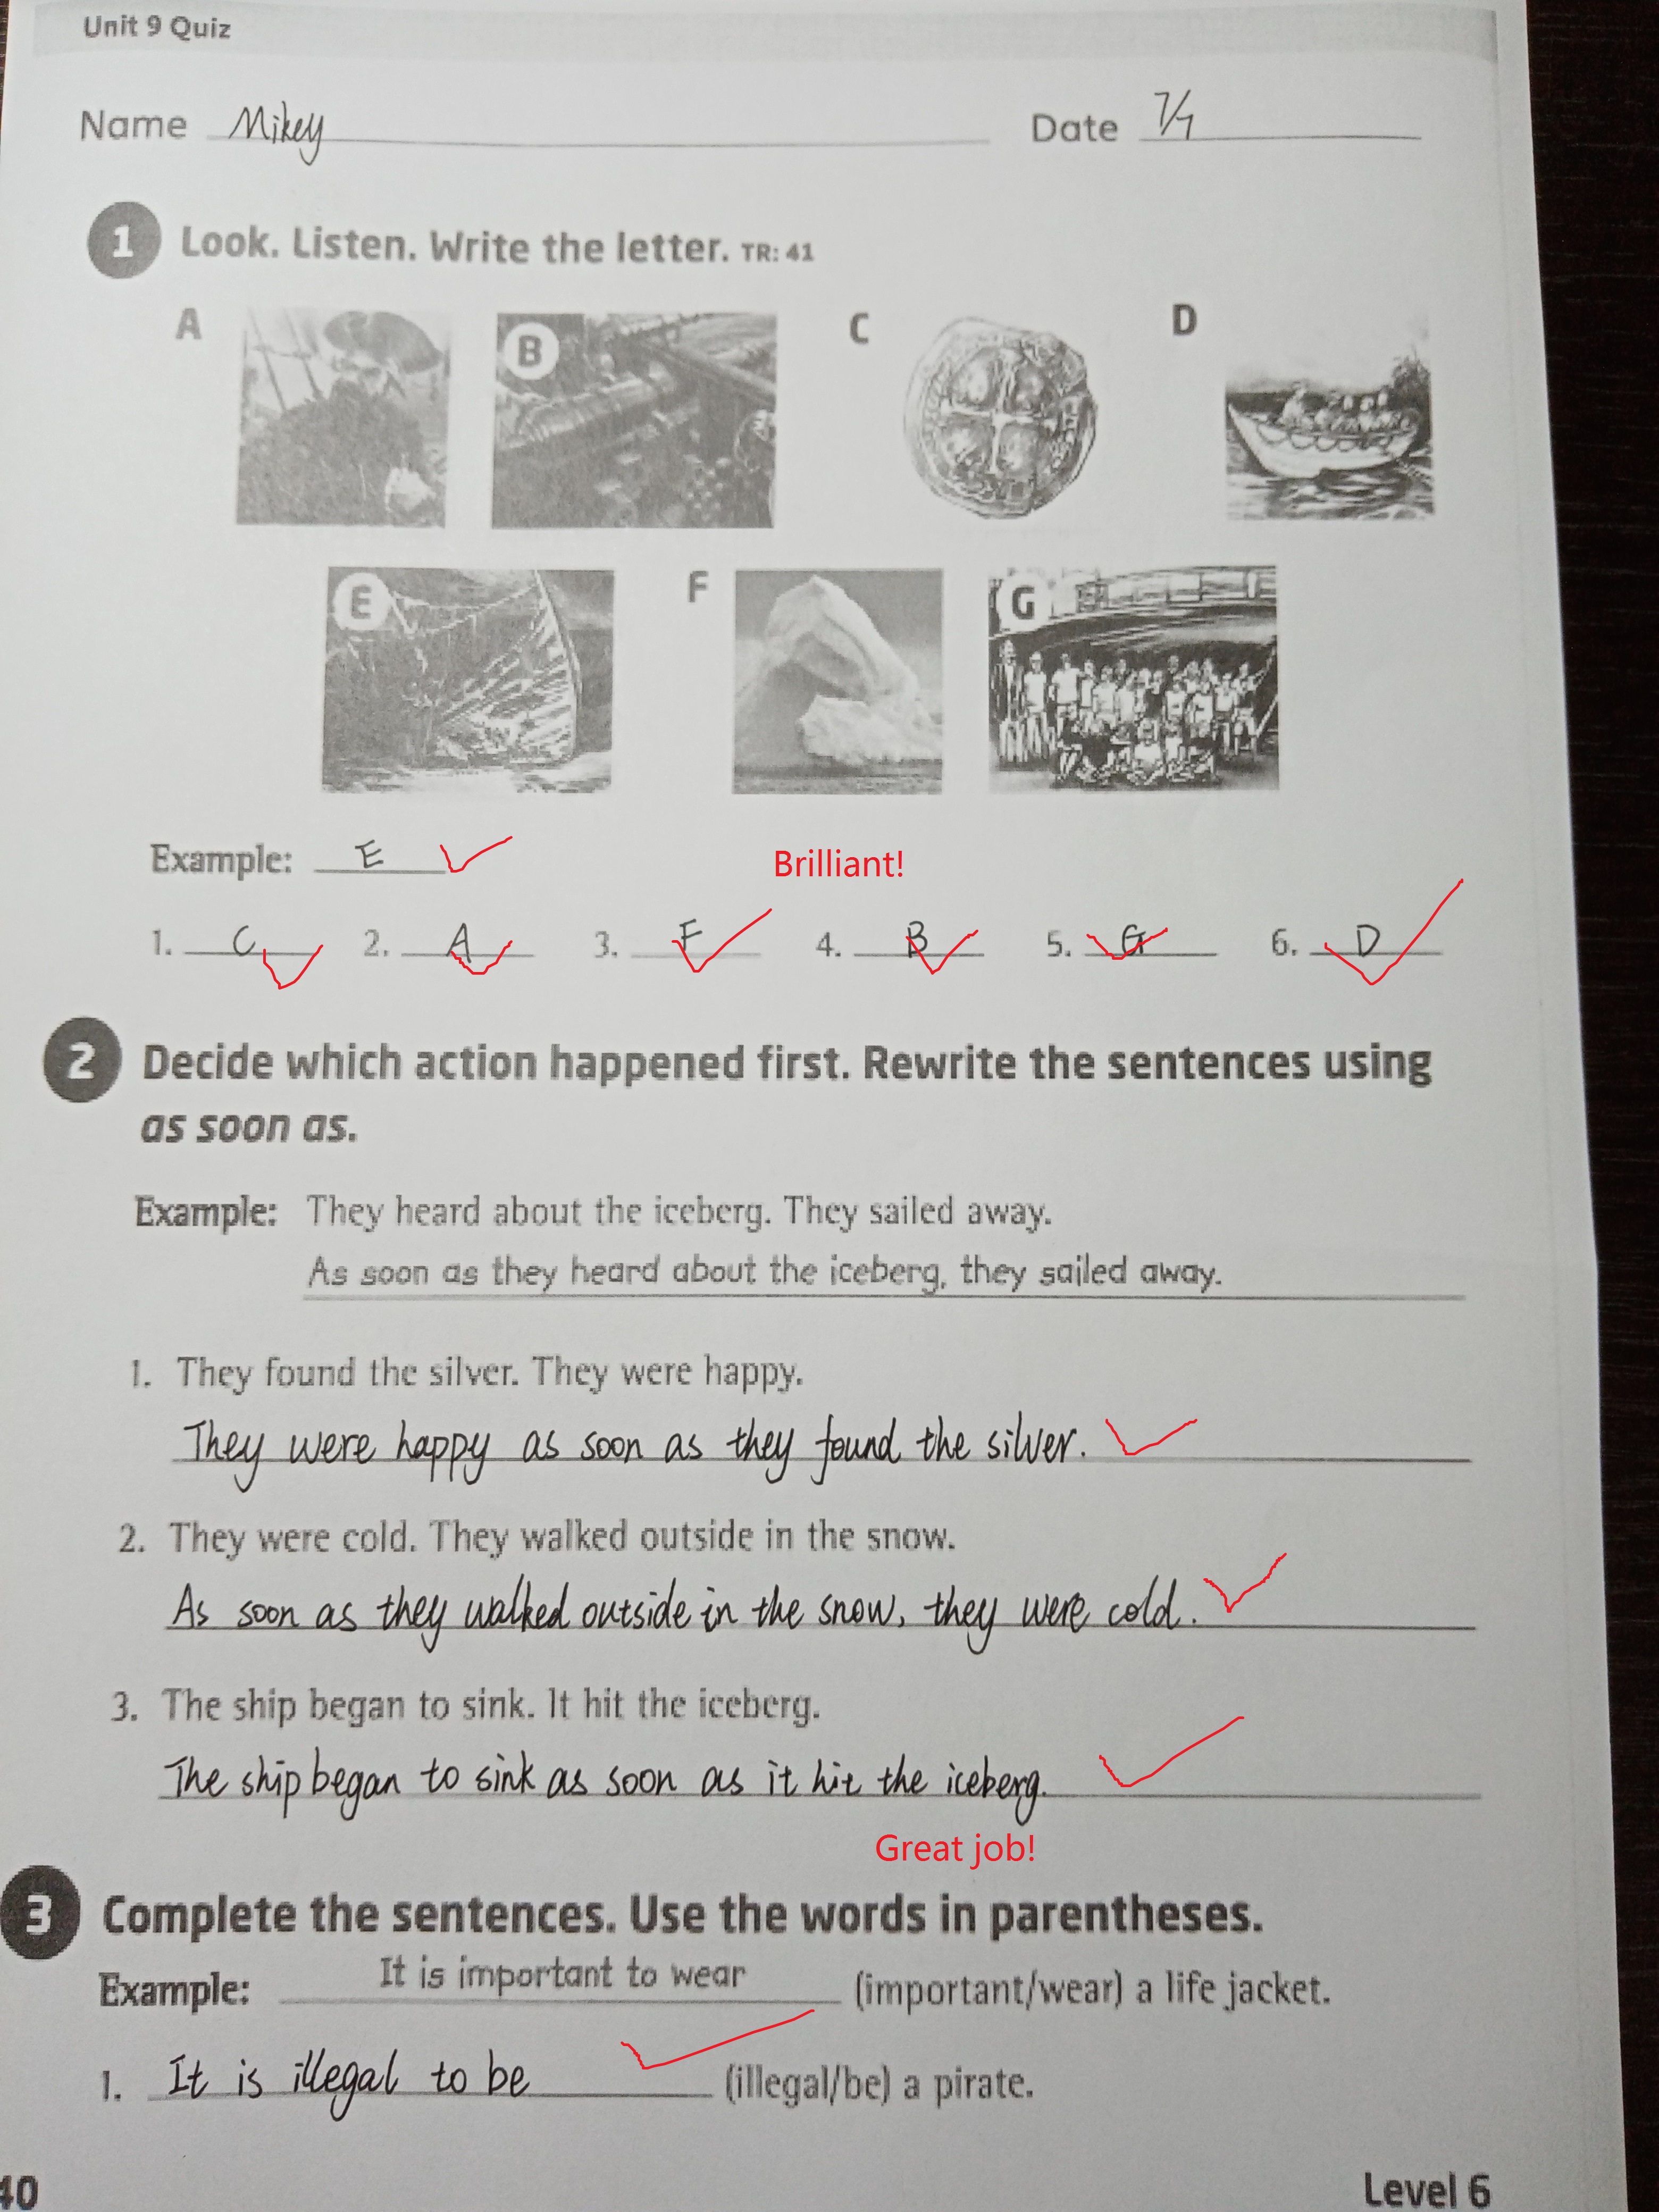 Unit 9 Quiz
Name Mikey Date 7/7
1 Look. Listen. Write the letter. TR: 41
A B C D
E F G
Example: E
Brilliant!
1. C 2. A 3. F 4. B 5. G 6. D
2 Decide which action happened first. Rewrite the sentences using
as soon as.
Example: They heard about the iceberg. They sailed away.
As soon as they heard about the iceberg, they sailed away.
1. They found the silver. They were happy.
They were happy as soon as they found the silver.
2. They were cold. They walked outside in the snow.
As soon as they walked outside in the snow, they were cold.
3. The ship began to sink. It hit the iceberg.
The ship began to sink as soon as it hit the iceberg.
Great job!
3 Complete the sentences. Use the words in parentheses.
Example: It is important to wear (important/wear) a life jacket.
1. It is illegal to be (illegal/be) a pirate.
40 Level 6